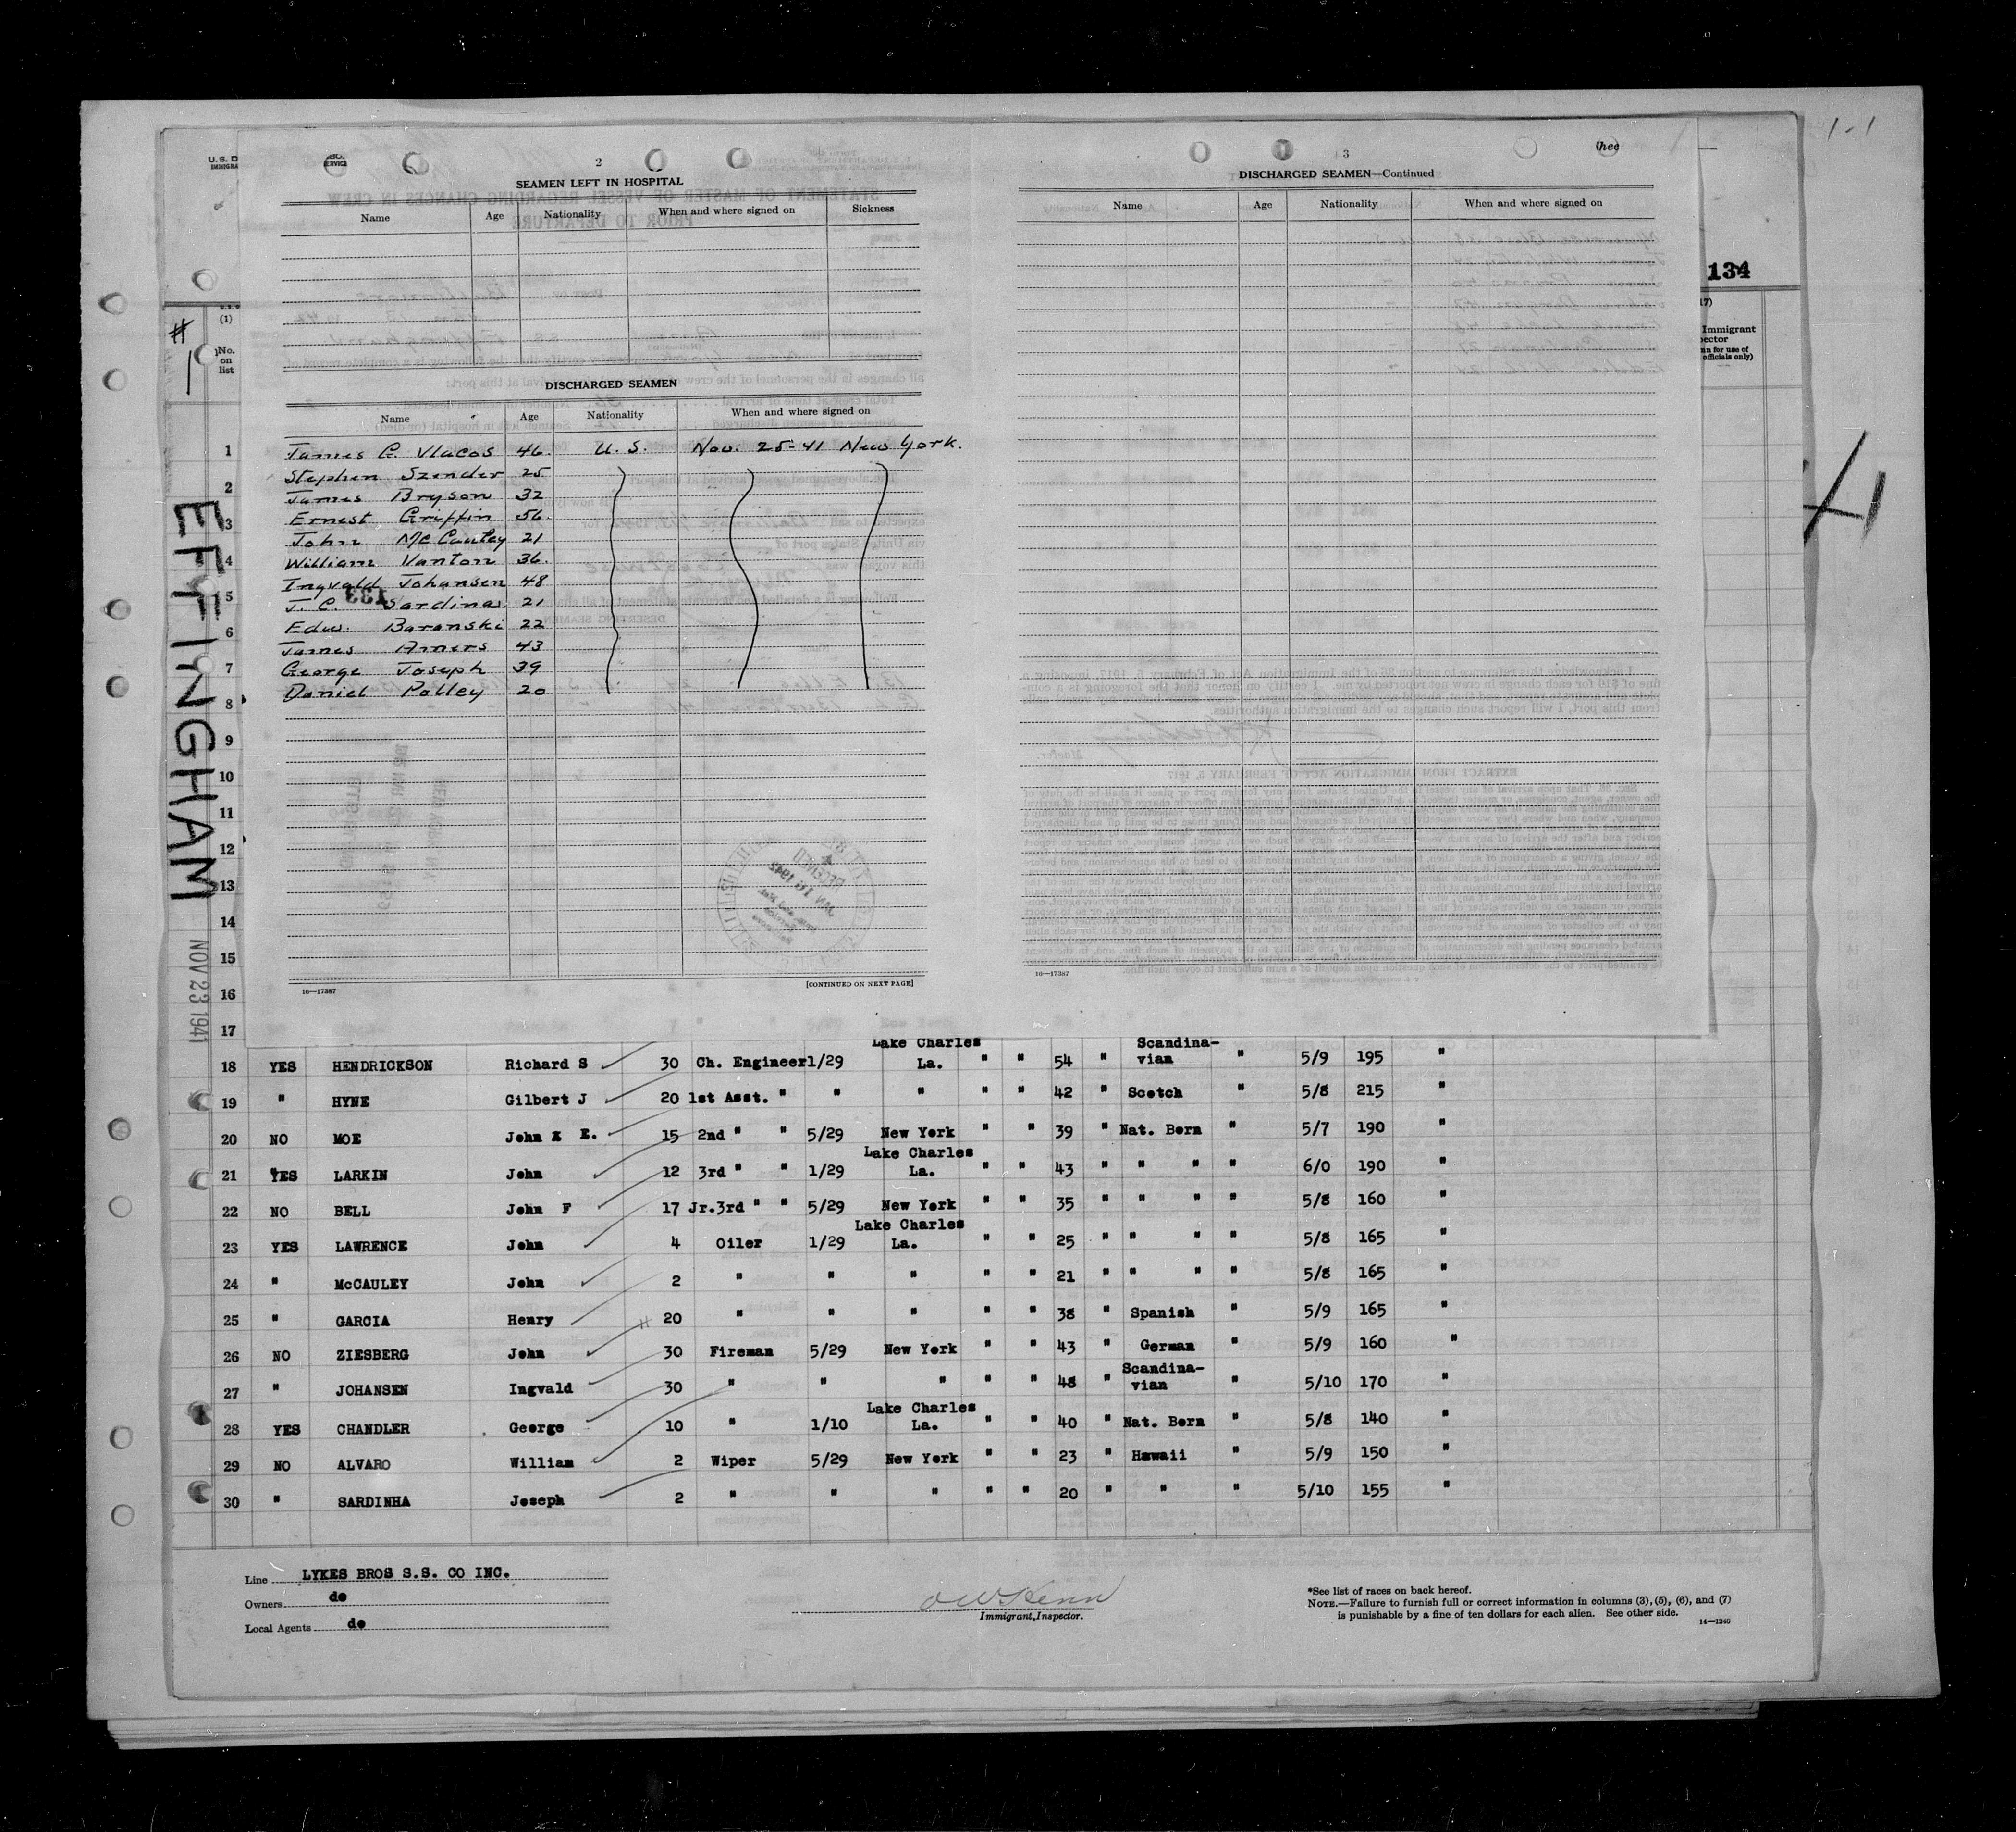 1-1
U.S. D
IMMIGRA
2
SEAMEN LEFT IN HOSPITAL
Name Age Nationality When and where signed on Sickness
DISCHARGED SEAMEN
Name Age Nationality When and where signed on
James G. Vlacos 46 U. S. Nov. 25-41 New York.
Stephen Szender 25
James Bryson 32
Ernest Griffin 56
John McCauley 21
William Vanton 36
Ingvald Johansen 48
133
J. C. Sardina 21
Edw. Baranski 22
James Amers 43
George Joseph 39
Daniel Polley 20
16—17387 [CONTINUED ON NEXT PAGE]
3
DISCHARGED SEAMEN—Continued
Name Age Nationality When and where signed on
16—17387
134
Immigrant
officials only)
#1
EFFINGHAM
NOV 23 1941
(1)
No.
on
list
1
2
3
4
5
6
7
8
9
10
11
12
13
14
15
16
17
18 YES HENDRICKSON Richard S 30 Ch. Engineer 1/29 Lake Charles La. " " 54 " Scandina-vian " 5/9 195 "
19 " HYNE Gilbert J 20 1st Asst. " " " " " 42 " Scotch " 5/8 215 "
20 NO MOE John X E. 15 2nd " " 5/29 New York " " 39 " Nat. Born " 5/7 190 "
21 YES LARKIN John 12 3rd " " 1/29 Lake Charles La. " " 43 " " " " 6/0 190 "
22 NO BELL John F 17 Jr.3rd " " 5/29 New York " " 35 " " " " 5/8 160 "
23 YES LAWRENCE John 4 Oiler 1/29 Lake Charles La. " " 25 " " " " 5/8 165 "
24 " McCAULEY John 2 " " " " " 21 " " " " 5/8 165 "
25 " GARCIA Henry 20 " " " " " 38 " Spanish " 5/9 165 "
26 NO ZIESBERG John 30 Fireman 5/29 New York " " 43 " German " 5/9 160 "
27 " JOHANSEN Ingvald 30 " " " " " 48 " Scandina-vian " 5/10 170 "
28 YES CHANDLER George 10 " 1/10 Lake Charles La. " " 40 " Nat. Born " 5/8 140 "
29 NO ALVARO William 2 Wiper 5/29 New York " " 23 " Hawaii " 5/9 150 "
30 " SARDINHA Joseph 2 " " " " " 20 " " " 5/10 155 "
Line LYKES BROS S.S. CO INC.
Owners do
Local Agents do
Immigrant Inspector.
*See list of races on back hereof.
NOTE.—Failure to furnish full or correct information in columns (3), (5), (6), and (7)
is punishable by a fine of ten dollars for each alien. See other side.
14—1240